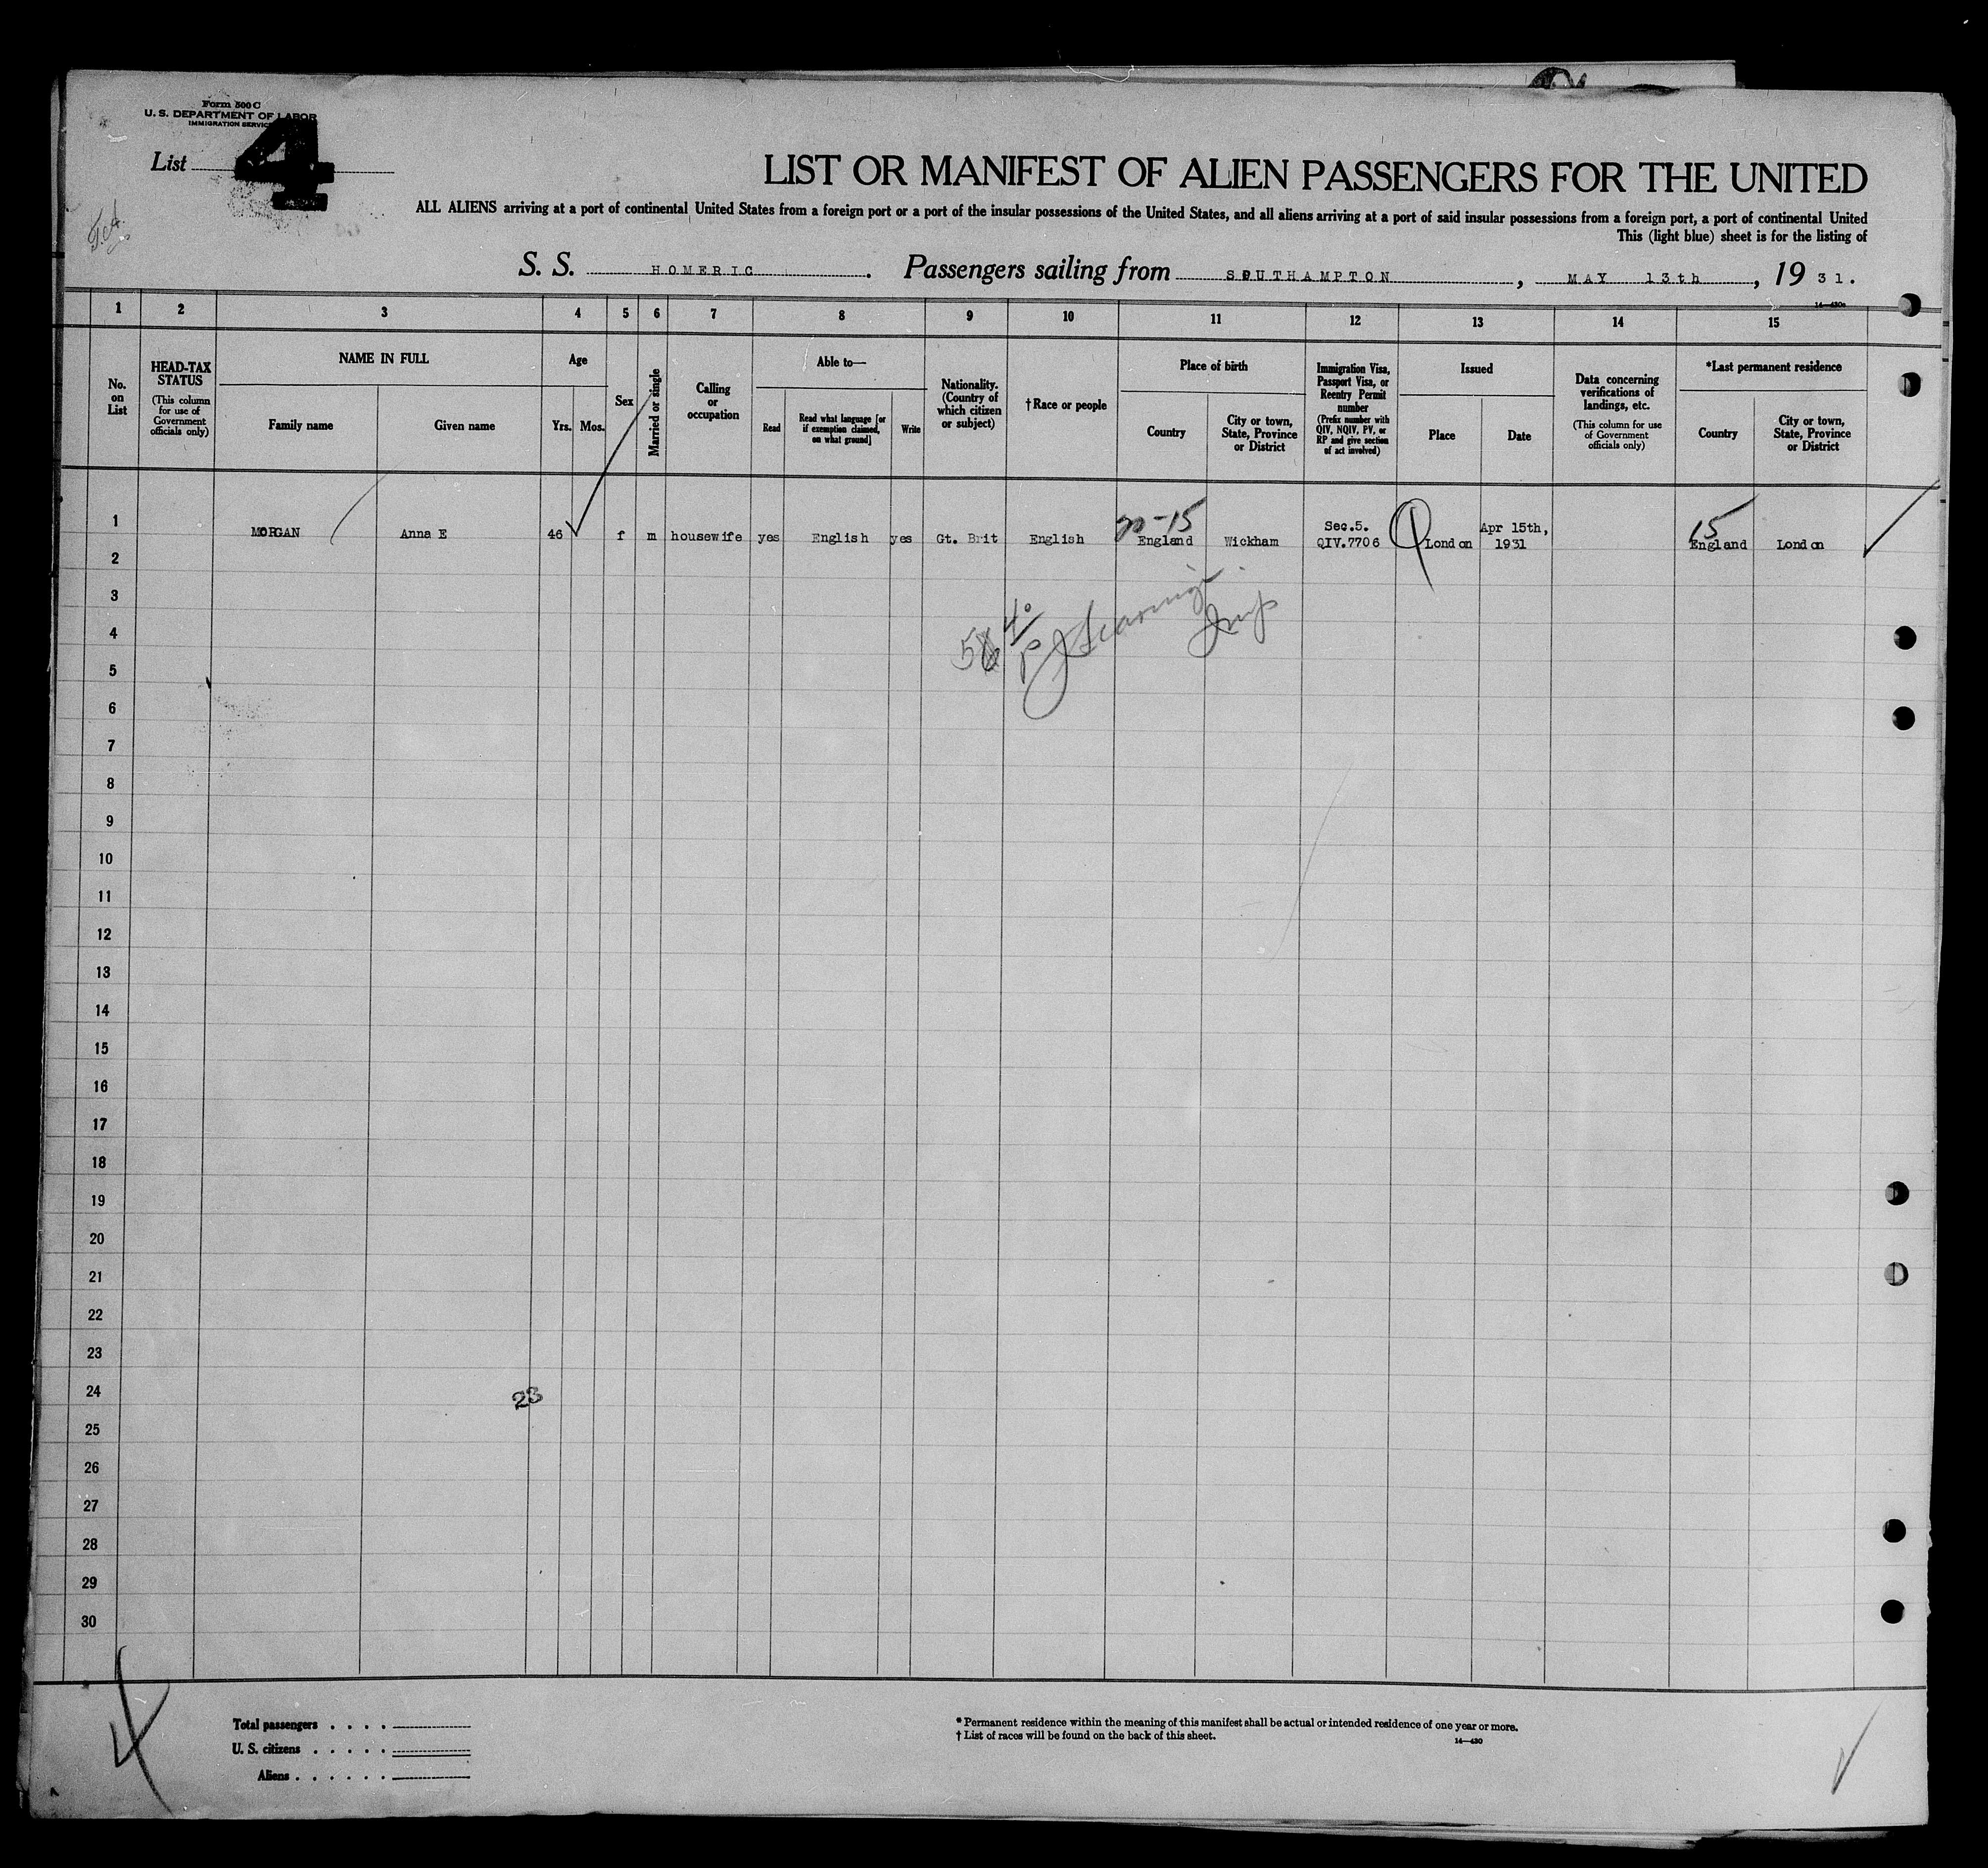 Form 500 C
U. S. DEPARTMENT OF LABOR
IMMIGRATION SERVICE
List 4
LIST OR MANIFEST OF ALIEN PASSENGERS FOR THE UNITED
ALL ALIENS arriving at a port of continental United States from a foreign port or a port of the insular possessions of the United States, and all aliens arriving at a port of said insular possessions from a foreign port, a port of continental United
This (light blue) sheet is for the listing of
S. S. HOMERIC. Passengers sailing from SOUTHAMPTON, MAY 13th, 19 31.
14—430a
1 2 3 4 5 6 7 8 9 10 11 12 13 14 15
No. on List
HEAD-TAX STATUS
(This column for use of Government officials only)
NAME IN FULL
Family name
Given name
Age
Yrs. Mos.
Sex
Married or single
Calling or occupation
Able to—
Read
Read what language [or if exemption claimed, on what ground]
Write
Nationality. (Country of which citizen or subject)
† Race or people
Place of birth
Country
City or town, State, Province or District
Immigration Visa, Passport Visa, or Reentry Permit number
(Prefix number with QIV, NQIV, PV, or RP and give section of act involved)
Issued
Place
Date
Data concerning verifications of landings, etc.
(This column for use of Government officials only)
*Last permanent residence
Country
City or town, State, Province or District
20-15
15
1 MORGAN Anna E 46 f m housewife yes English yes Gt. Brit English England Wickham Sec.5. QIV.7706 London Apr 15th, 1931 England London
2
3
4
5
6
7
8
9
10
11
12
13
14
15
16
17
18
19
20
21
22
23
24
23
25
26
27
28
29
30
4
Total passengers . . . .
U. S. citizens . . . . .
Aliens . . . . . .
* Permanent residence within the meaning of this manifest shall be actual or intended residence of one year or more.
† List of races will be found on the back of this sheet.
14—430